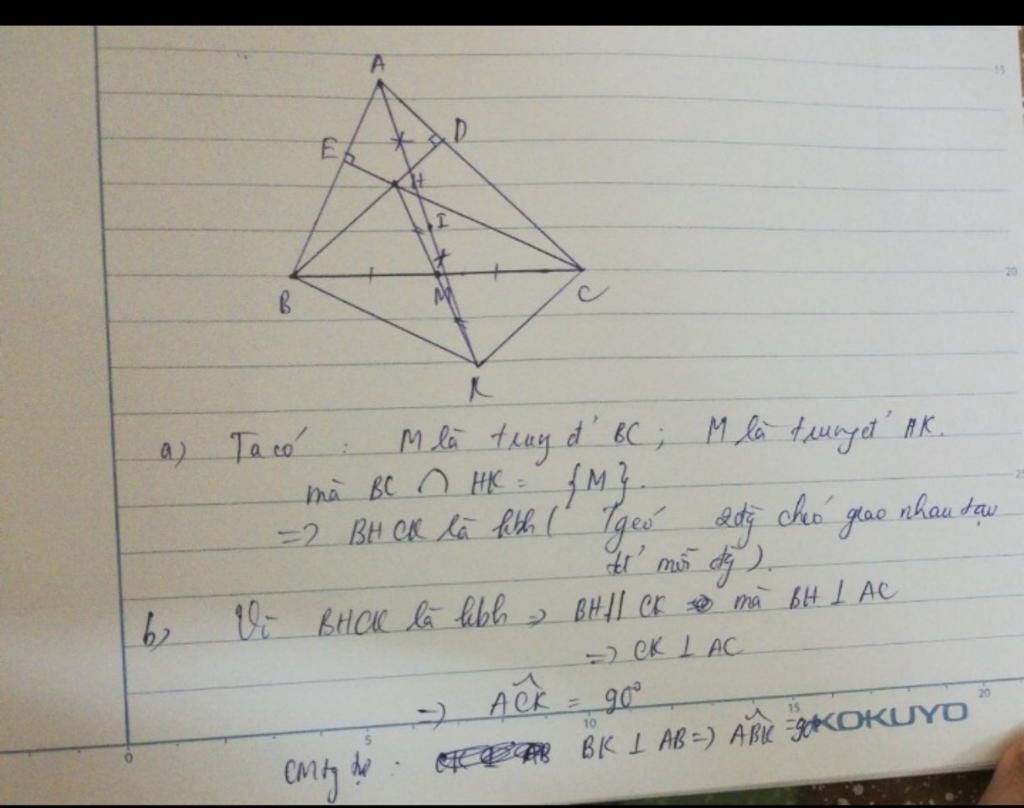 A
E
D
H
I
B
M
C
K
15
20
25
a) Ta có : M là trung đ' BC ; M là trung đ' HK.
mà BC ∩ HK = {M}.
=> BHCK là hbh ( Tgcó 2 đg chéo giao nhau tại
tđ' mỗi đg ).
b) Vì BHCK là hbh => BH // CK mà BH ⊥ AC
=> CK ⊥ AC
=> ACK = 90°
CM tg tự : BK ⊥ AB => ABK = 90°
0 5 10 15 20
KOKUYO